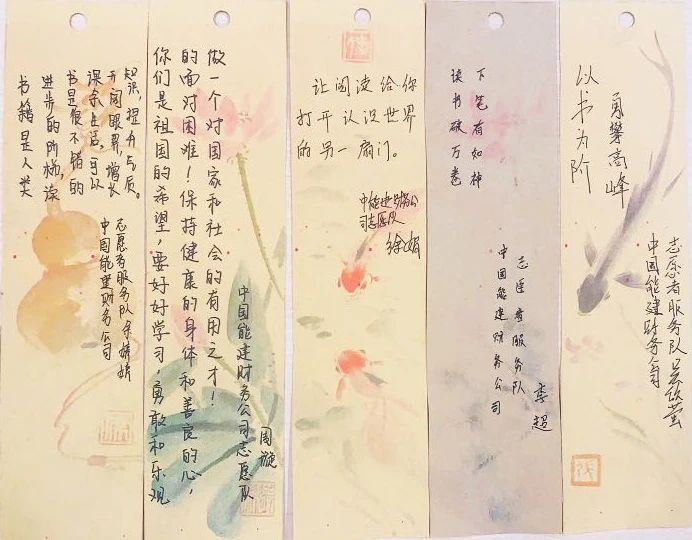 书籍是人类
进步的阶梯,读
书是很不错的
课余生活,可以
开阔眼界,增长
知识,提升气质。
中国能建财务公司
志愿者服务队余婧婧
你们是祖国的希望,要好好学习,勇敢和乐观
的面对困难!保持健康的身体和善良的心,
做一个对国家和社会的有用之才!
中国能建财务公司志愿队
周璇
让阅读给你
打开认识世界
的另一扇门。
中能建财务公
司志愿队
徐娟
读书破万卷
下笔有如神
中国能建财务公司
志愿者服务队
李超
以书为阶
勇攀高峰
中国能建财务公司
志愿者服务队